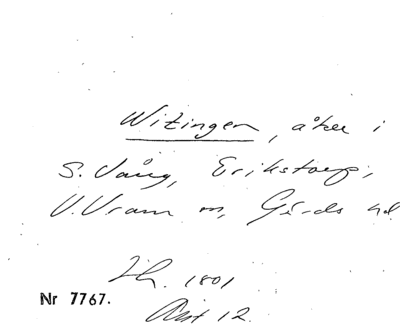 Witingen, åker i
S. Vång, Erikstorp,
V. Vram sn, Gärds hd
Sh. 1801
Akt 12.
Nr 7767.